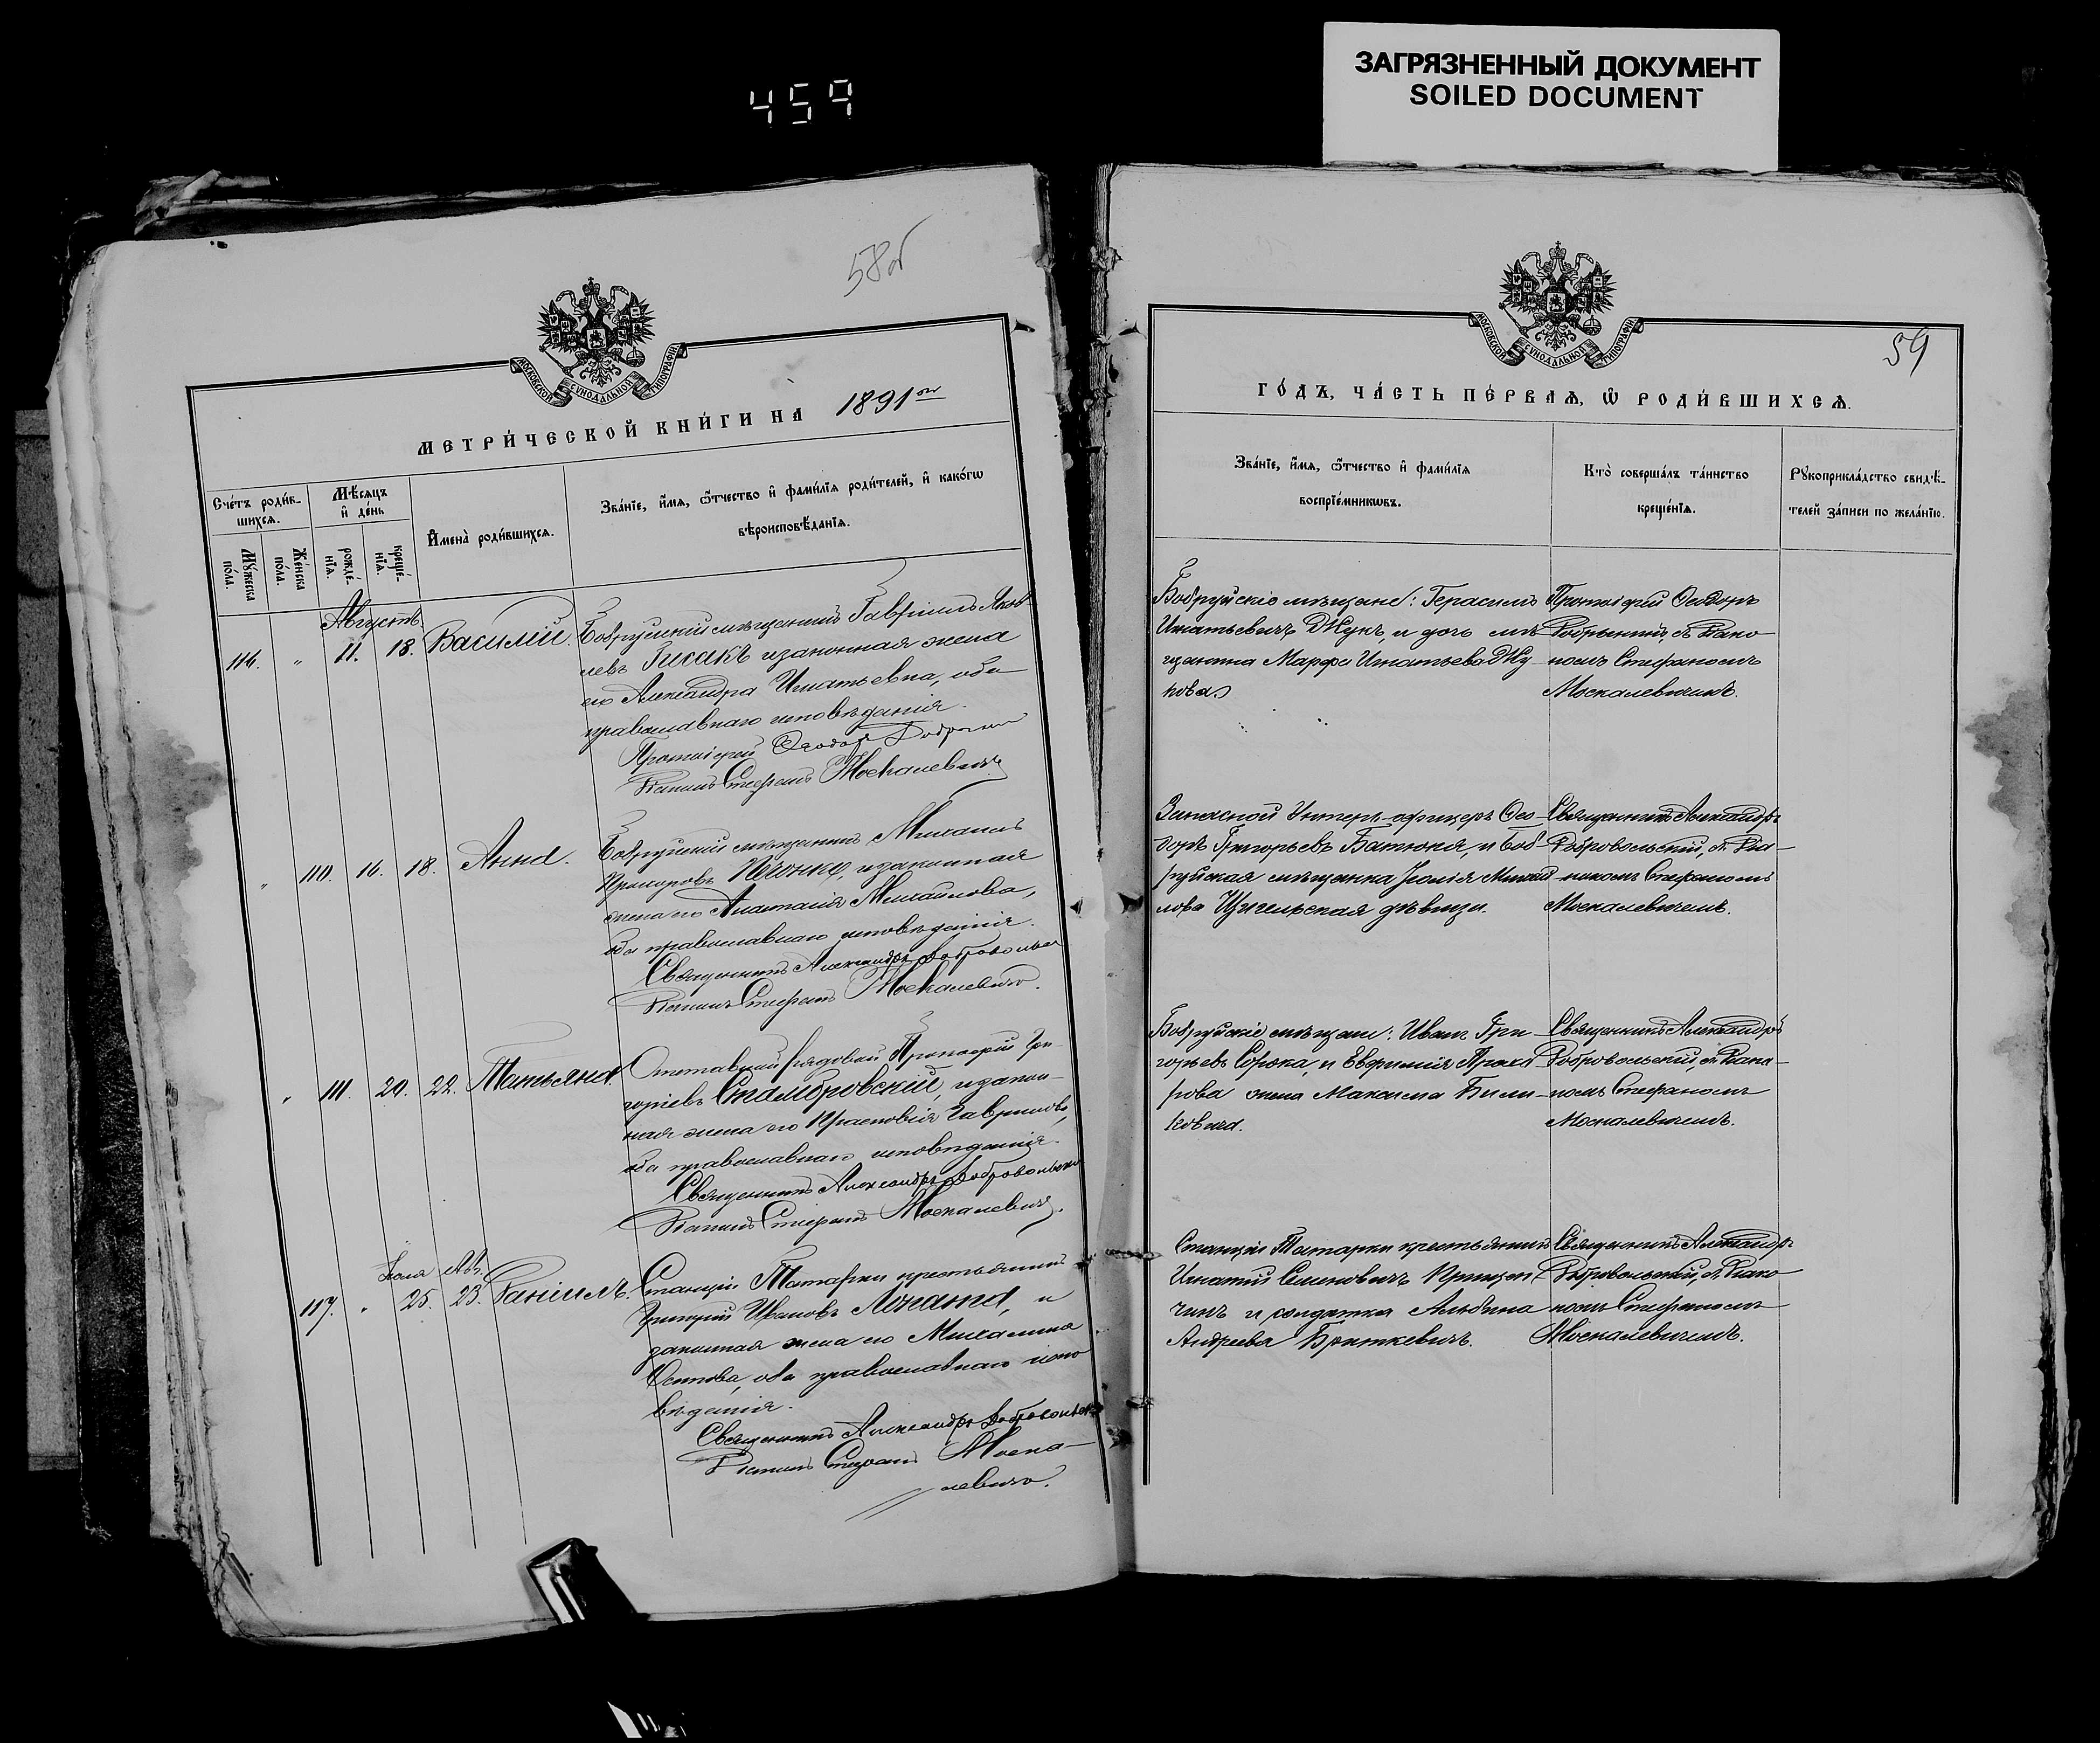 ЗАГРЯЗНЕННЫЙ ДОКУМЕНТ
SOILED DOCUMENT
459
58об
МОСКОВСКОЙ СѴНОДАЛЬНОЙ ТИПОГРАФІИ
МЕТРИ́ЧЕСКОЙ КНИ́ГИ НА 1891ый
Сче́тъ роди́в-
шихсѧ.
Мѣ́сѧцъ
и҆ де́нь
И҆мена̀ роди́вшихсѧ.
Зва́нїе, и҆́мѧ, ѻ҆́тчество и҆ фами́лїѧ роди́телей, и҆ како́гѡ
вѣроисповѣ́данїѧ.
Мꙋ́жеска по́ла.
Же́нска по́ла.
рожде́-нїѧ.
креще́-нїѧ.
Августъ.
116. " 11. 18. Василій.
Бобруйскій мѣщанинъ Гавріилъ Яков
левъ Гисакъ и законная жена
его Александра Игнатьевна, оба
православнаго исповѣданія.
Протоіерей Ѳеодоръ
Стефанъ Москалевичъ
" 110. 16. 18. Анна.
Бобруйскій мѣщанинъ Михаилъ
Прохоровъ и законная
жена его Анастасія Михайлова,
оба православнаго исповѣданія.
Священникъ Александръ Добровольскій
Стефанъ Москалевичъ.
" 111. 20. 22. Татьяна.
Отставной рядовой Гри-
горіевъ Стамбровскій, и закон-
ная жена его Прасковія Гаврилова,
оба православнаго исповѣданія.
Священникъ Александръ Добровольскій
Стефанъ Москалевичъ.
Іюля Авг.
117. " 25. 23. Даніилъ.
Станціи Татарки крестьянинъ
Григорій Ивановъ Лопата, и
законная жена его Михалина
Осипова, оба православнаго испо
вѣданія.
Священникъ Александръ Добровольскій
Стефанъ Моска-
левичъ.
59
МОСКОВСКОЙ СѴНОДАЛЬНОЙ ТИПОГРАФІИ
ГО́ДЪ, ЧА́СТЬ ПЕ́РВАѦ, Ѡ҆ РОДИ́ВШИХСѦ.
Зва́нїе, и҆́мѧ, ѻ҆́тчество и҆ фами́лїѧ
воспрїе́мникѡвъ.
Кто̀ соверша́лъ та́инство
креще́нїѧ.
Рꙋкоприкла́дство свидѣ́-
телей за́писи по жела́нїю.
Бобруйскіе мѣщане: Герасимъ
Игнатьевичъ Жукъ, и дочь мѣ
щанина Марфа Игнатьева Жу
кова.
Протоіерей Ѳеодоръ
съ Діако
номъ Стефаномъ
Москалевичемъ.
Запасной Унтеръ-офицеръ Ѳео-
доръ Григорьевъ Батюня, и Боб-
руйская мѣщанка Юлія Михай
лова дѣвица.
Священникъ Александръ
Добровольскій, съ Діа-
кономъ Стефаномъ
Москалевичемъ.
Бобруйскіе мѣщане: Иванъ Гри-
горьевъ Сорока, и Евфимія Прохо
рова жена Максима Били-
ковича.
Священникъ Александръ
Добровольскій, съ Діако-
номъ Стефаномъ
Москалевичемъ.
Станціи Татарки крестьянинъ
Игнатій Семеновичъ
и солдатка Альбина
Андреева Бриткевичъ.
Священникъ Александръ
Добровольскій, съ Діако
номъ Стефаномъ
Москалевичемъ.